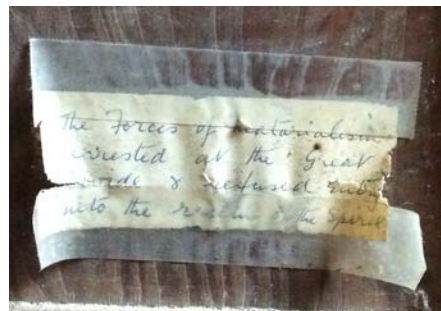 The Forces of Materialism
arrested at the Great
& refused Entry
into the realm of the Spirit